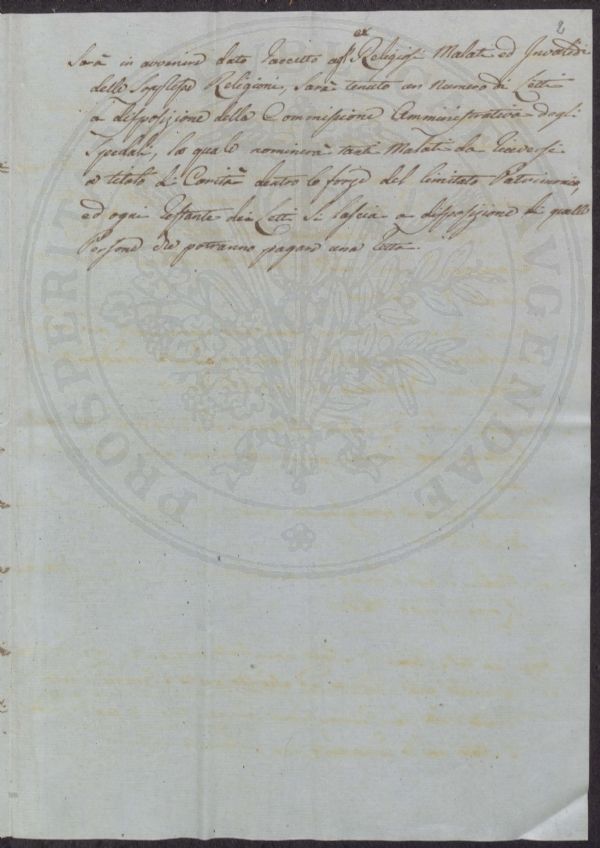 2
Sarà in avvenire dato Ricetto agl'ex Religiosi Malati ed Invalidi
delle Soppresse Religioni, sarà tenuto un numero di Letti
a disposizione della Commissione Amministrativa degli
Spedali, la quale nominerà tanti Malati da riceversi
a titolo di Carità dentro le forze del limitato Patrimonio,
ed ogni restante dei Letti si lascia a disposizione di quelle
Persone che potranno pagare una Retta.
PROSPERITATI AUGENDAE